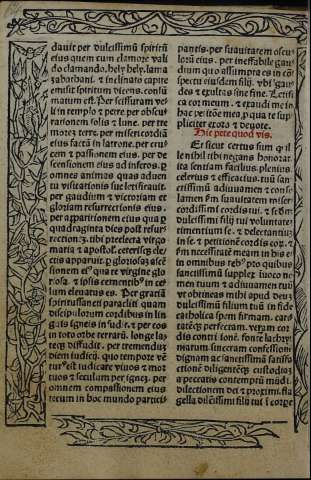 dauit per dulcissimū spiritū
eius quem cum clamore vali
do clamando. hely hely. lama
zabathani. & inclinato capite
emisit spiritum dicens. consū
matum est. Per scissuram ve
li in templo & perre per obscu
rationem solis & lune. per tre
motez terre. per misericordiā
eius factā in latrone. per cru
cem & passionem eius. per de
scensionem eius ad inferos. p
omnes animas quas aduen
tu visitationis sue letificauit.
per gaudium & victoriam et
gloriam resurrectionis eius.
per apparitionem eius quā p
quadraginta dies post resur
rectionez. tibi preelecta virgo
maria & apostol. ceterisqz ele
ctis apparuit. p gloriosaz ascē
sionem eiꝰ qua te virgine glo
riosa. & ipsis cernentibꝰ in ce
lum eleuatus es. Per gratiā
spiritussancti paracliti quam
discipulorum cordibus in lin
guis igneis infudit. & per eos
in toto orbe terrarū. longe la
teqz diffudit. per tremenduz
diem iudicij. quo tempore vē
turꝰ est iudicare viuos & mor
tuos & seculum per ignez. per
omnem compassionem eius
quam in hoc mundo partici
pantis. per suauitatem oscu
lorū eius. per ineffabile gau
dium quo assumpta es in cō
spectu eiusdem filij. vbi gau
des & exultas sine fine. Letifi
ca cor meum. & exaudi me in
hac petitōe mea p qua te sup
pliciter oro & deuote.
Hic pete quod vis.
Et sicut certus sum qꝫ il
le nihil tibi negans honorat.
ita sentiam facilius. plenius.
celerius & efficatius. tuū san
ctissimū adiuuamen & conso
lamen fm suauitatem miser
cordissimi cordis tui. & scdm
dulcissimi filij tui voluntatē
timentium se. & delectantiuz
in se. & petitionē cordis eoꝝ. &
fm necessitatē meam in his et
in omnibus rebꝰ pro quibus
sanctissimū supplex inuoco no
men tuum & adiuuamen tuū
vt obtineas mihi apud deuz
dulcissimū filium tuū in fide
catholica spem firmam. cari
tatēqz perfectam. veram cor
dis contritionē. fonte lachry
marum. sinceram confessionē
dignam ac sanctissimā satisfa
ctionē diligentēqz custodiaz
a peccatis contemptū mūdi.
dilectionem dei & proximi. fla
gella dilectissimi filij tui in corpe